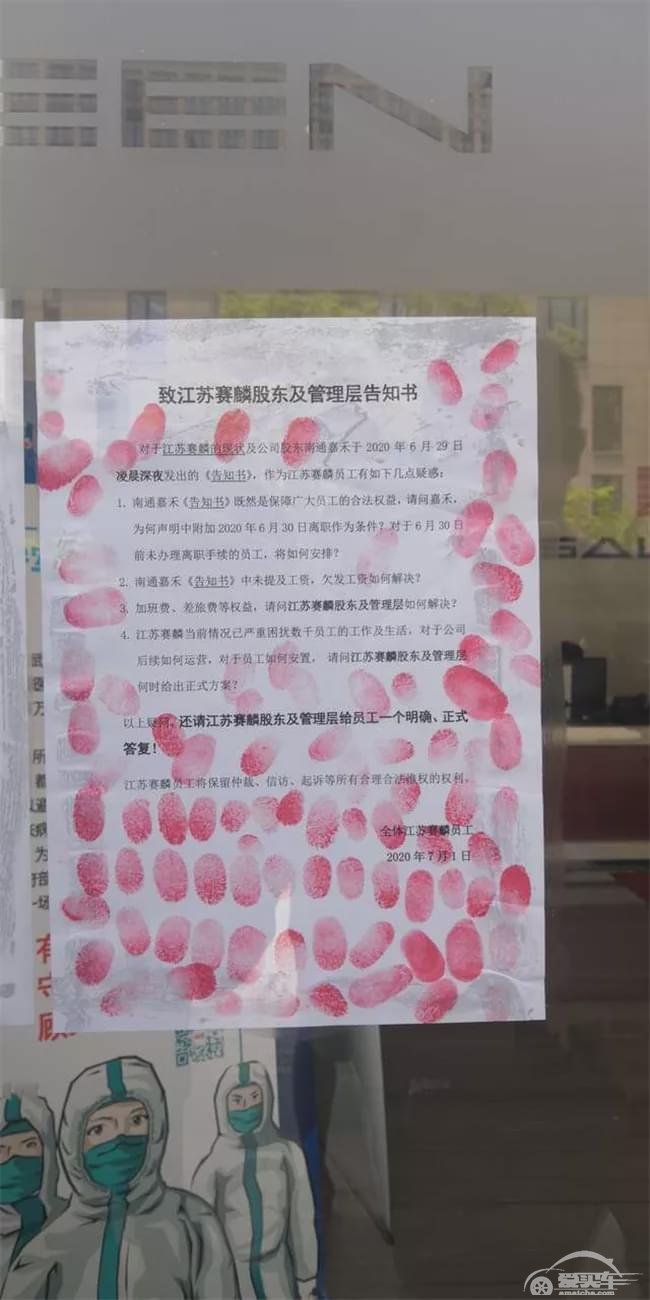 EEN
致江苏赛麟股东及管理层告知书
对于江苏赛麟的现状及公司股东南通嘉禾于 2020 年 6 月 29 日
凌晨深夜发出的《告知书》，作为江苏赛麟员工有如下几点疑惑：
1. 南通嘉禾《告知书》既然是保障广大员工的合法权益，请问嘉禾，
为何声明中附加 2020 年 6 月 30 日离职作为条件？对于 6 月 30 日
前未办理离职手续的员工，将如何安排？
2. 南通嘉禾《告知书》中未提及工资，欠发工资如何解决？
3. 加班费、差旅费等权益，请问江苏赛麟股东及管理层如何解决？
4. 江苏赛麟当前情况已严重困扰数千员工的工作及生活，对于公司
后续如何运营，对于员工如何安置， 请问江苏赛麟股东及管理层
何时给出正式方案？
以上疑问，还请江苏赛麟股东及管理层给员工一个明确、正式
答复！
江苏赛麟员工将保留仲裁、信访、起诉等所有合理合法维权的权利。
全体江苏赛麟员工
2020 年 7 月 1 日
有
守
顾
爱买车
amaiche.com